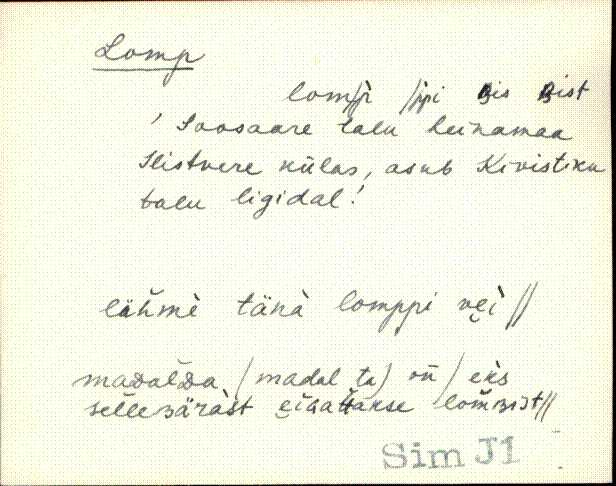 Lomp
lom/p̀ /p̀pi ʙis ʙist
' Soosaare talu heinamaa
Ilistvere külas, asub Kivistiku
talu ligidal!
lähmè tänà lomppi vèi //
maᴅalᴅa (madal ta) on / eks
sellesäräst eigattakse lomʙist //
Sim J1